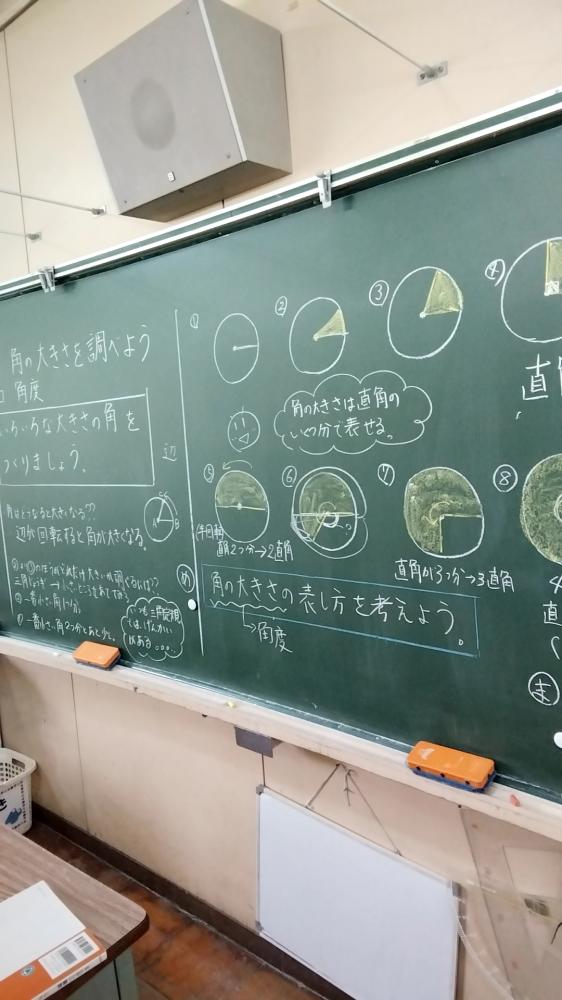 角の大きさを調べよう
□ 角度
いろいろな大きさの角を
つくりましょう。
辺
角はどうなると大きくなる??
辺が回転すると角が大きくなる。
A
B
三角じょうぎ→小さいところをあててみる
一番小さい角1つ分。
一番小さい角2つ分とあと少し。
①
②
③
④
直角
角の大きさは直角の
いくつ分で表せる。
⑤
⑥
⑦
⑧
(半回転)
直角2つ分→2直角
直角が3つ分→3直角
4
直
め
角の大きさの表し方を考えよう。
→角度
ま